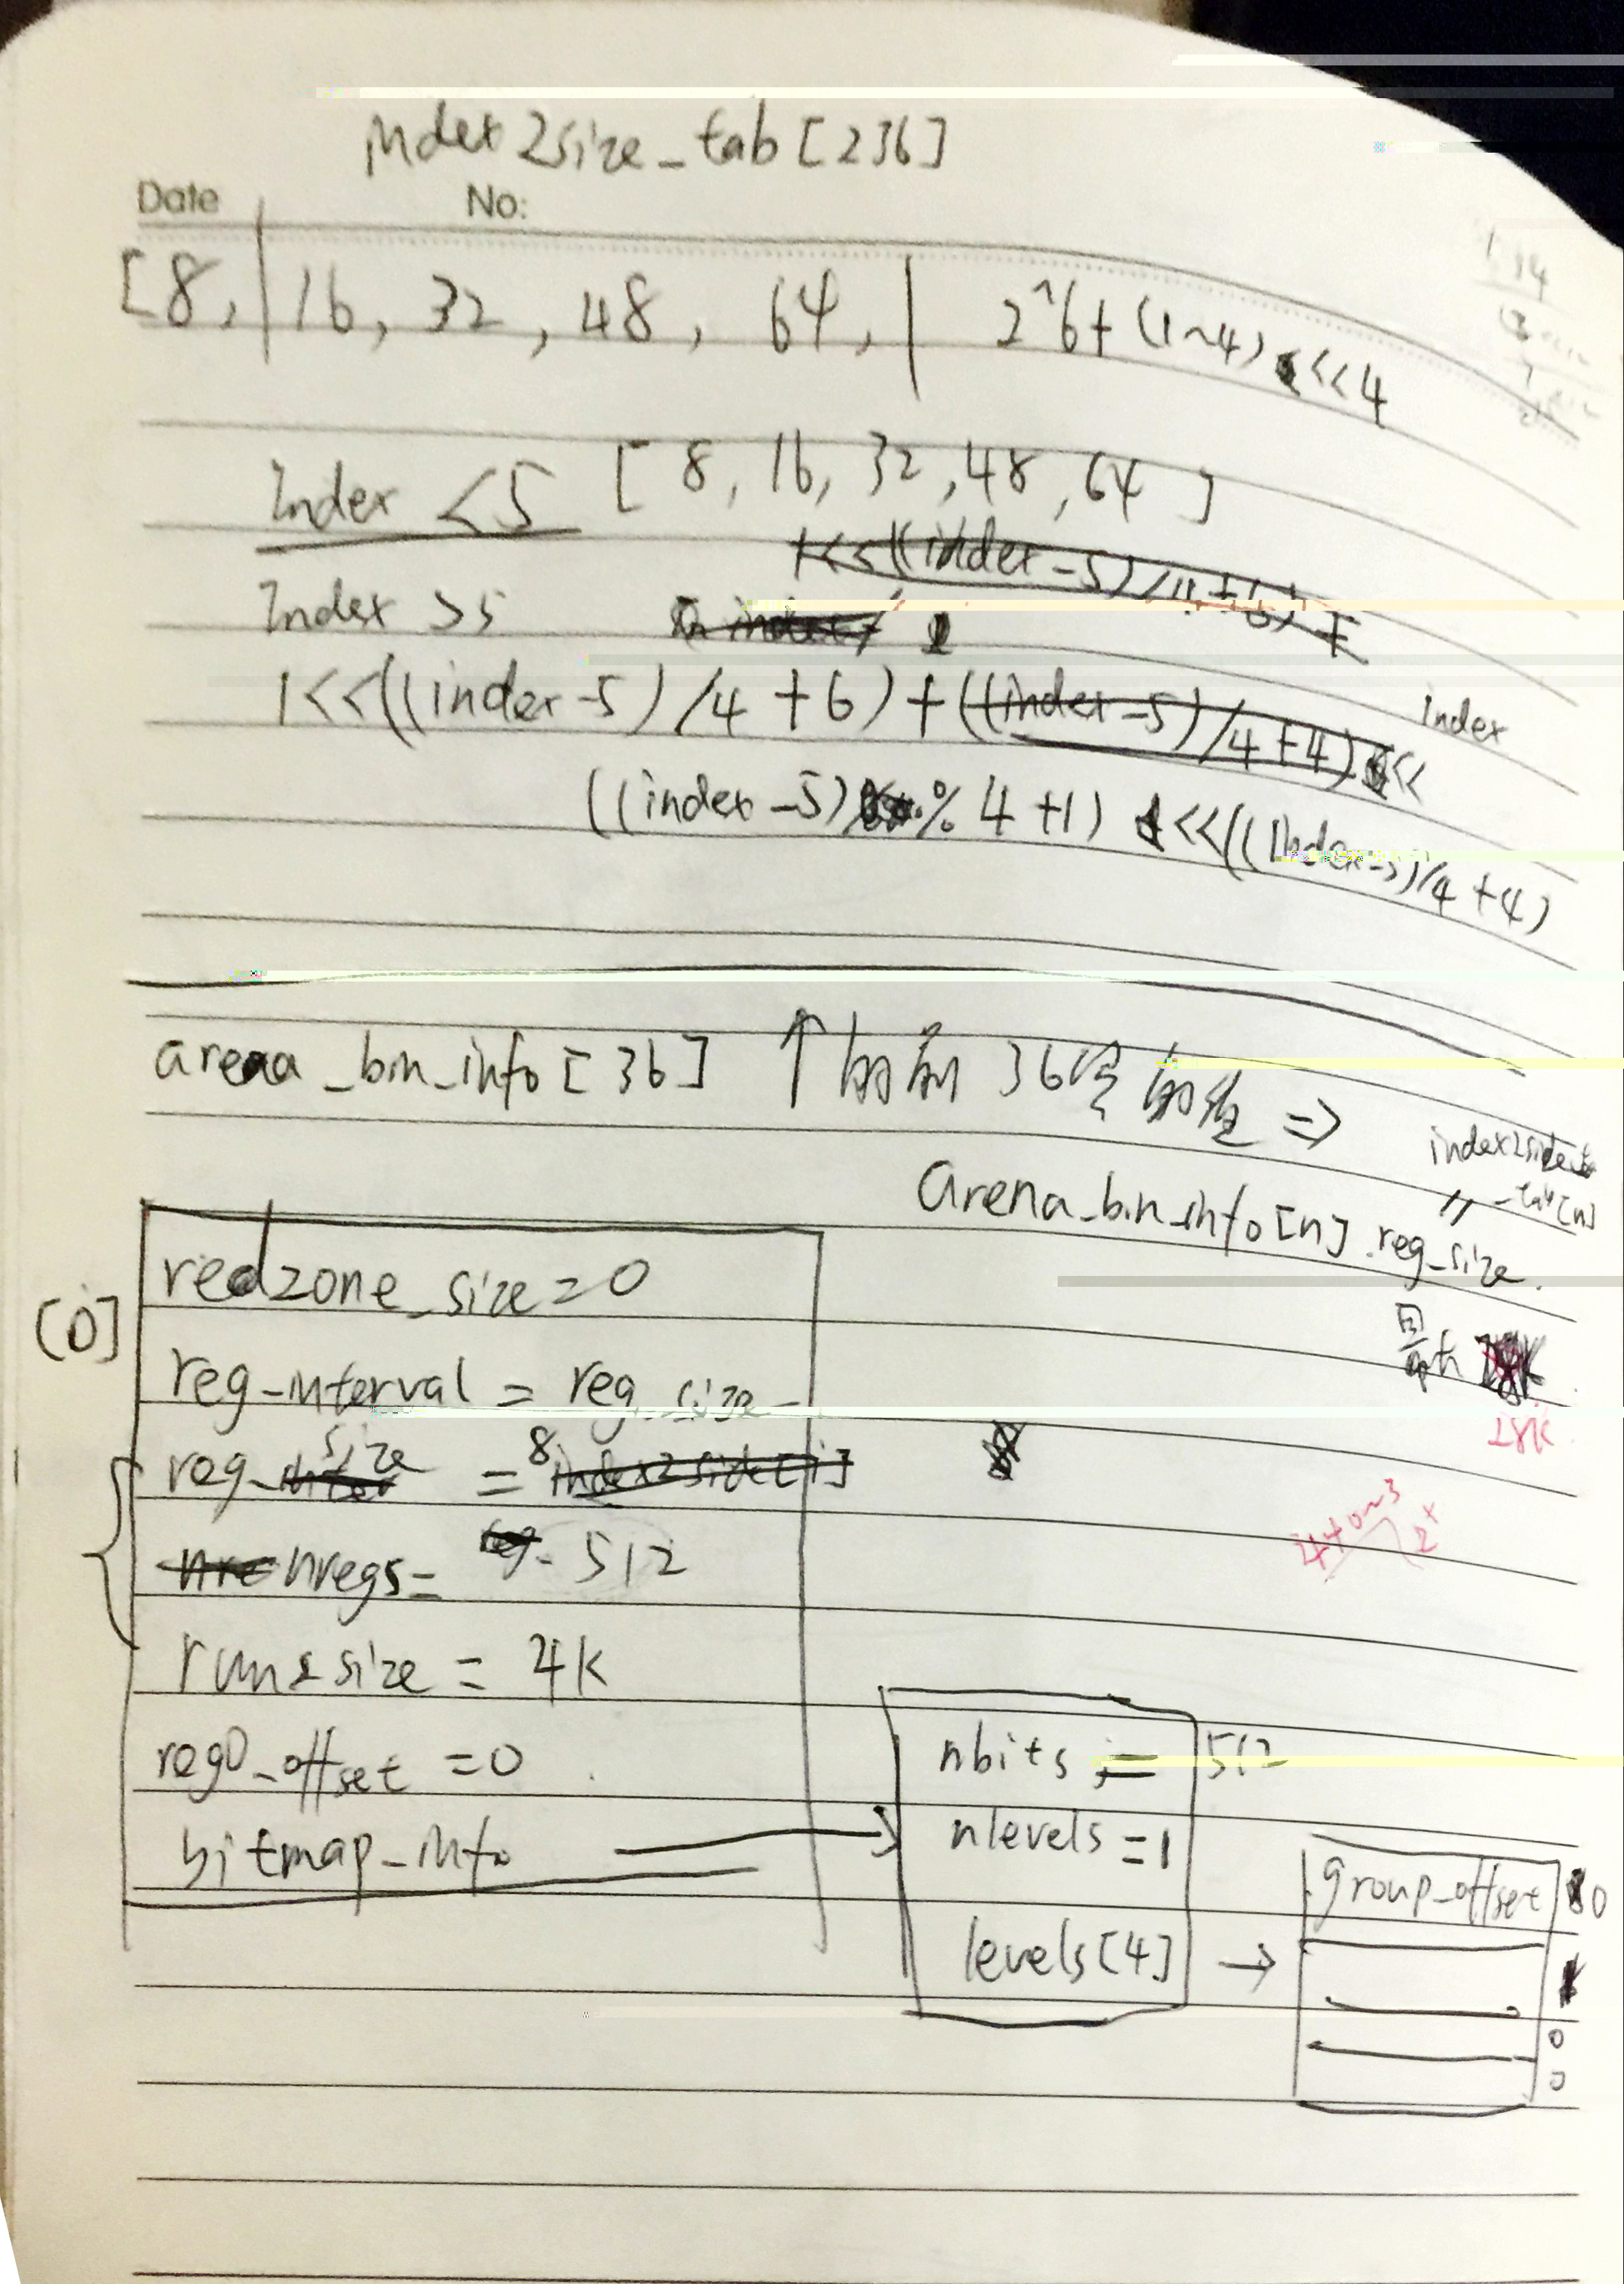 index2size_tab[236]
Date No:
[8, | 16, 32, 48, 64, | 2^6+(1~4)<<4
Index <5 [8, 16, 32, 48, 64]
Index >5
1<<((index-5)/4+6)+
index
((index-5)%4+1)<<((index-5)/4+4)
arena_bin_info[36] ↑的前36 的 =>
arena_bin_info[n].reg_size.
[0]
redzone_size=0
reg_interval = reg_size
reg_size = 8
nregs= 512
run size = 4K
reg0_offset =0
bitmap_info
nbits = 512
nlevels =1
levels[4] →
group_offset 0
0
0